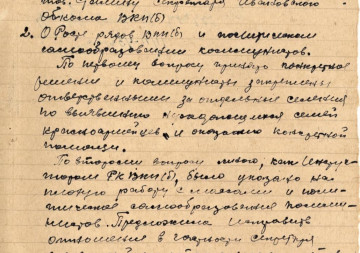 тов. Секретаря Ивановского
Обкома ВКП(б)
2. О Росте рядов ВКП(б) и политическом
самообразовании коммунистов.
По первому вопросу принято конкретное
решение и коммунисты закреплены
ответственными за отдельные селения
по выявлению нуждающихся семей
красноармейцев и оказанию конкретной
помощи.
По второму вопросу мною, как Инструк-
тором РК ВКП(б), было указано на
плохую работу с массами и поли-
тическое самообразование комму-
нистов. Предложено исправить
отношение в частности секретаря